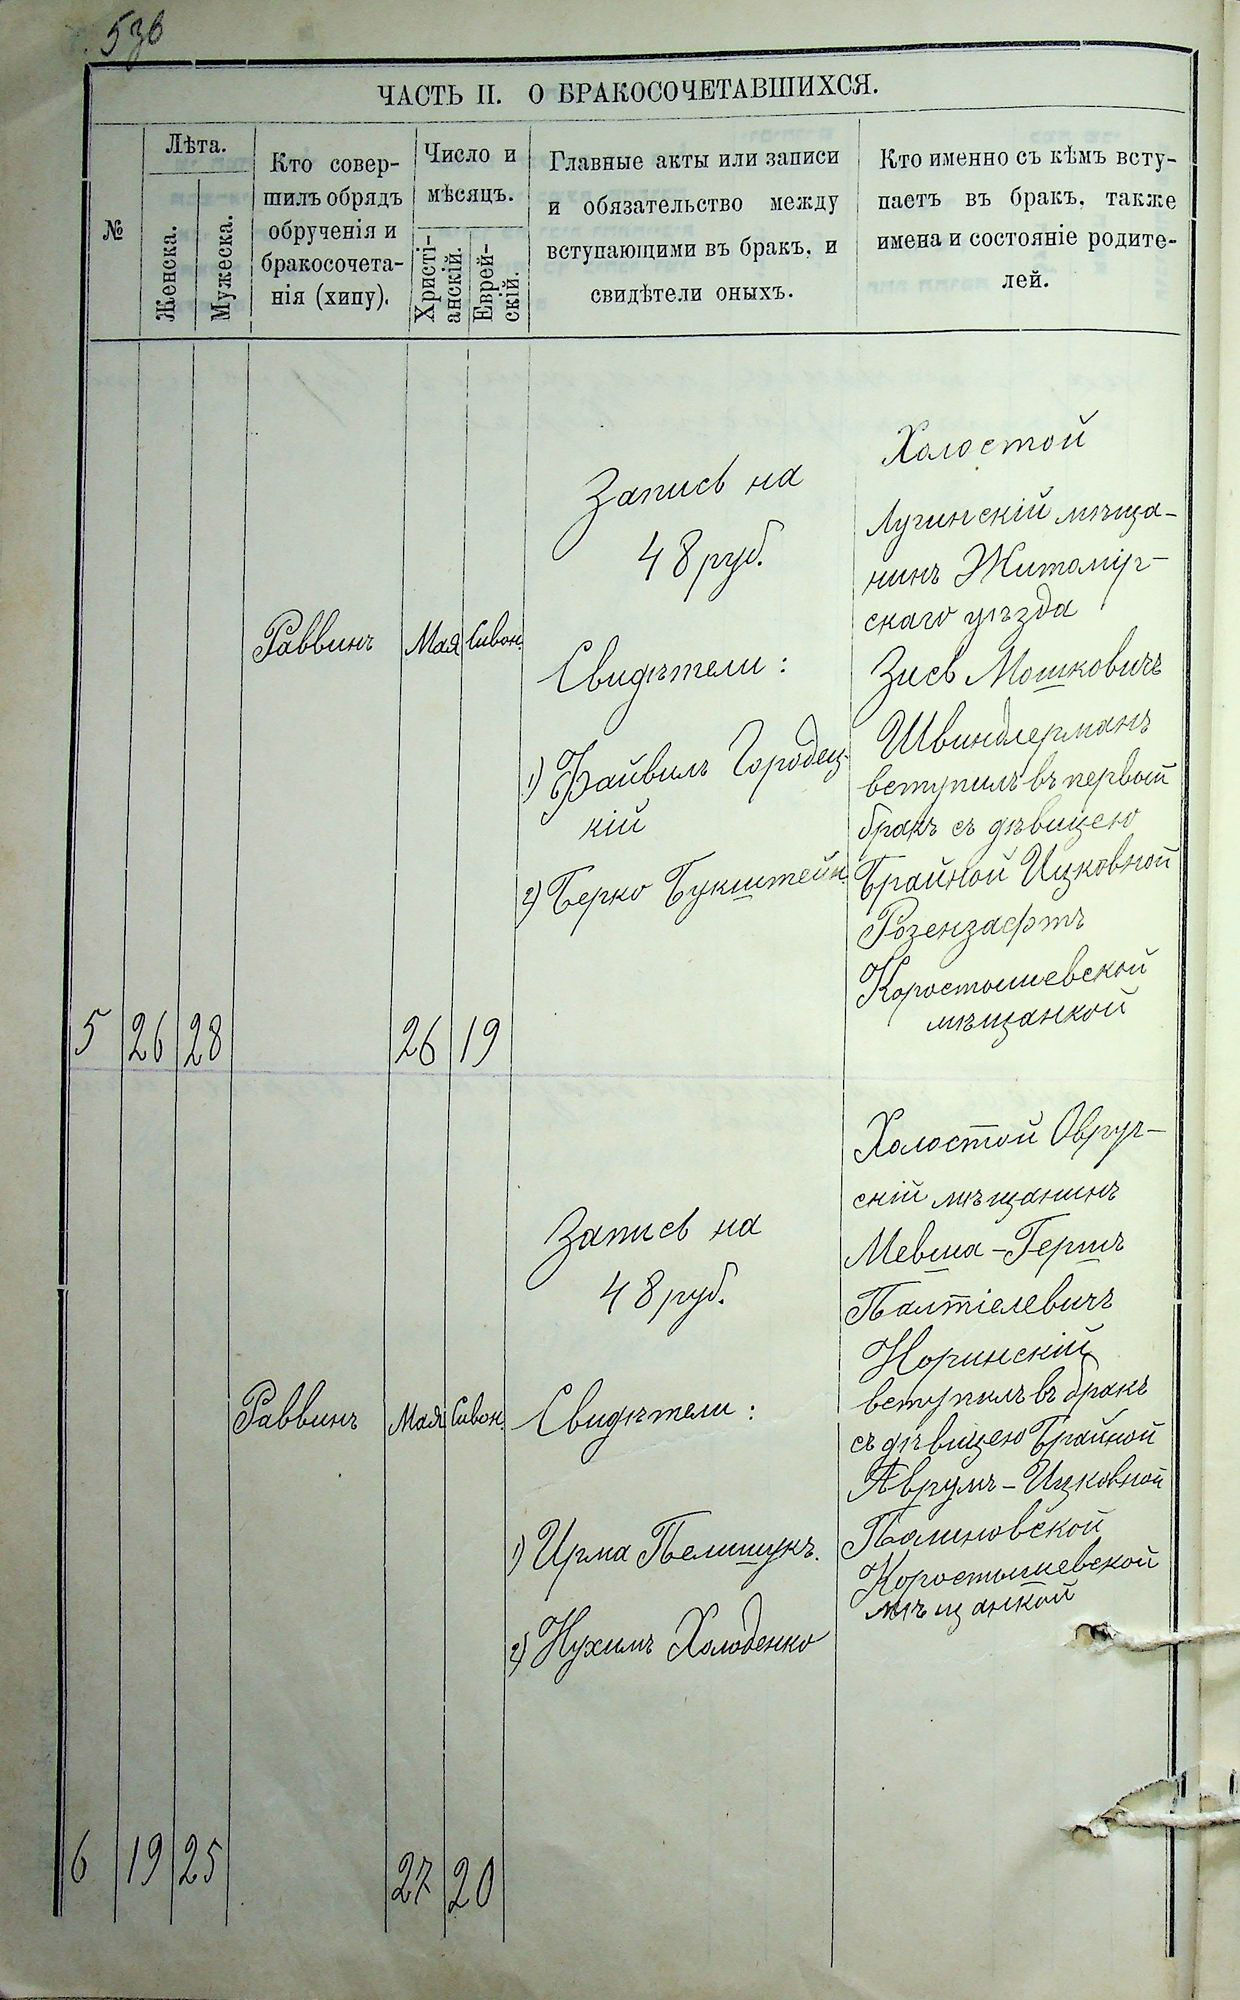 53в
ЧАСТЬ II. О БРАКОСОЧЕТАВШИХСЯ.
№
Лѣта.
Женска.
Мужеска.
Кто совер-
шилъ обрядъ
обрученія и
бракосочета-
нія (хипу).
Число и
мѣсяцъ.
Христі-
анскій.
Еврей-
скій.
Главные акты или записи
и обязательство между
вступающими въ бракъ, и
свидѣтели оныхъ.
Кто именно съ кѣмъ всту-
паетъ въ бракъ, также
имена и состояніе родите-
лей.
5
26
28
Раввинъ
Мая
26
Сивон.
19
Запись на
48 руб.
Свидѣтели:
1) Файвиль Городец-
кій
2) Берко Букштейн.
Холостой
Лугинскій мѣща-
нинъ Житомір-
скаго уѣзда
Зись Мошковичъ
Швиндлерманъ
вступилъ въ первый
бракъ съ дѣвицею
Брайной Ицковной
Розензафтъ
Коростышевской
мѣщанкой
6
19
25
Раввинъ
Мая
27
Сивон.
20
Запись на
48 руб.
Свидѣтели:
1) Ирма Пелишукъ.
2) Нухимъ Холоденко
Холостой Овруч-
скій мѣщанинъ
Мевша-Гершъ
Палтіелевичъ
Норинскій
вступилъ въ бракъ
съ дѣвицею Брайной
Аврумъ-Ицковной
Палиновской
Коростышевской
мѣщанкой